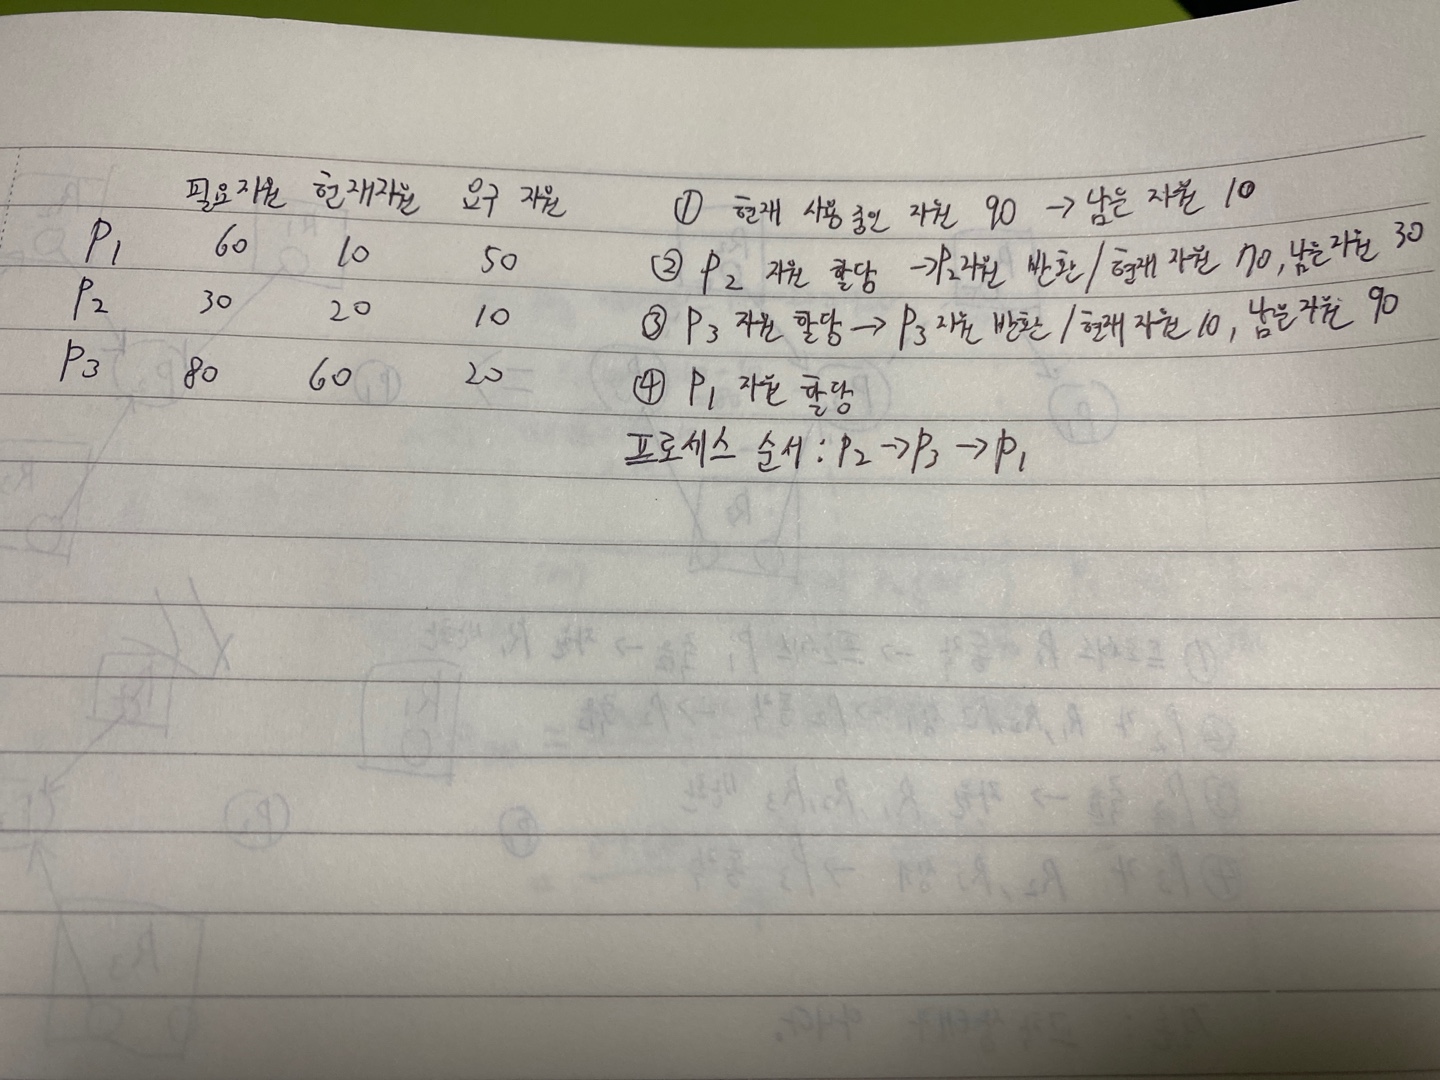 필요자원 현재자원 요구 자원
P1 60 10 50
P2 30 20 10
P3 80 60 20
① 현재 사용중인 자원 90 → 남은 자원 10
② P2 자원 할당 → P2자원 반환 / 현재 자원 70, 남은자원 30
③ P3 자원 할당 → P3 자원 반환 / 현재자원 10, 남은자원 90
④ P1 자원 할당
프로세스 순서 : P2 → P3 → P1